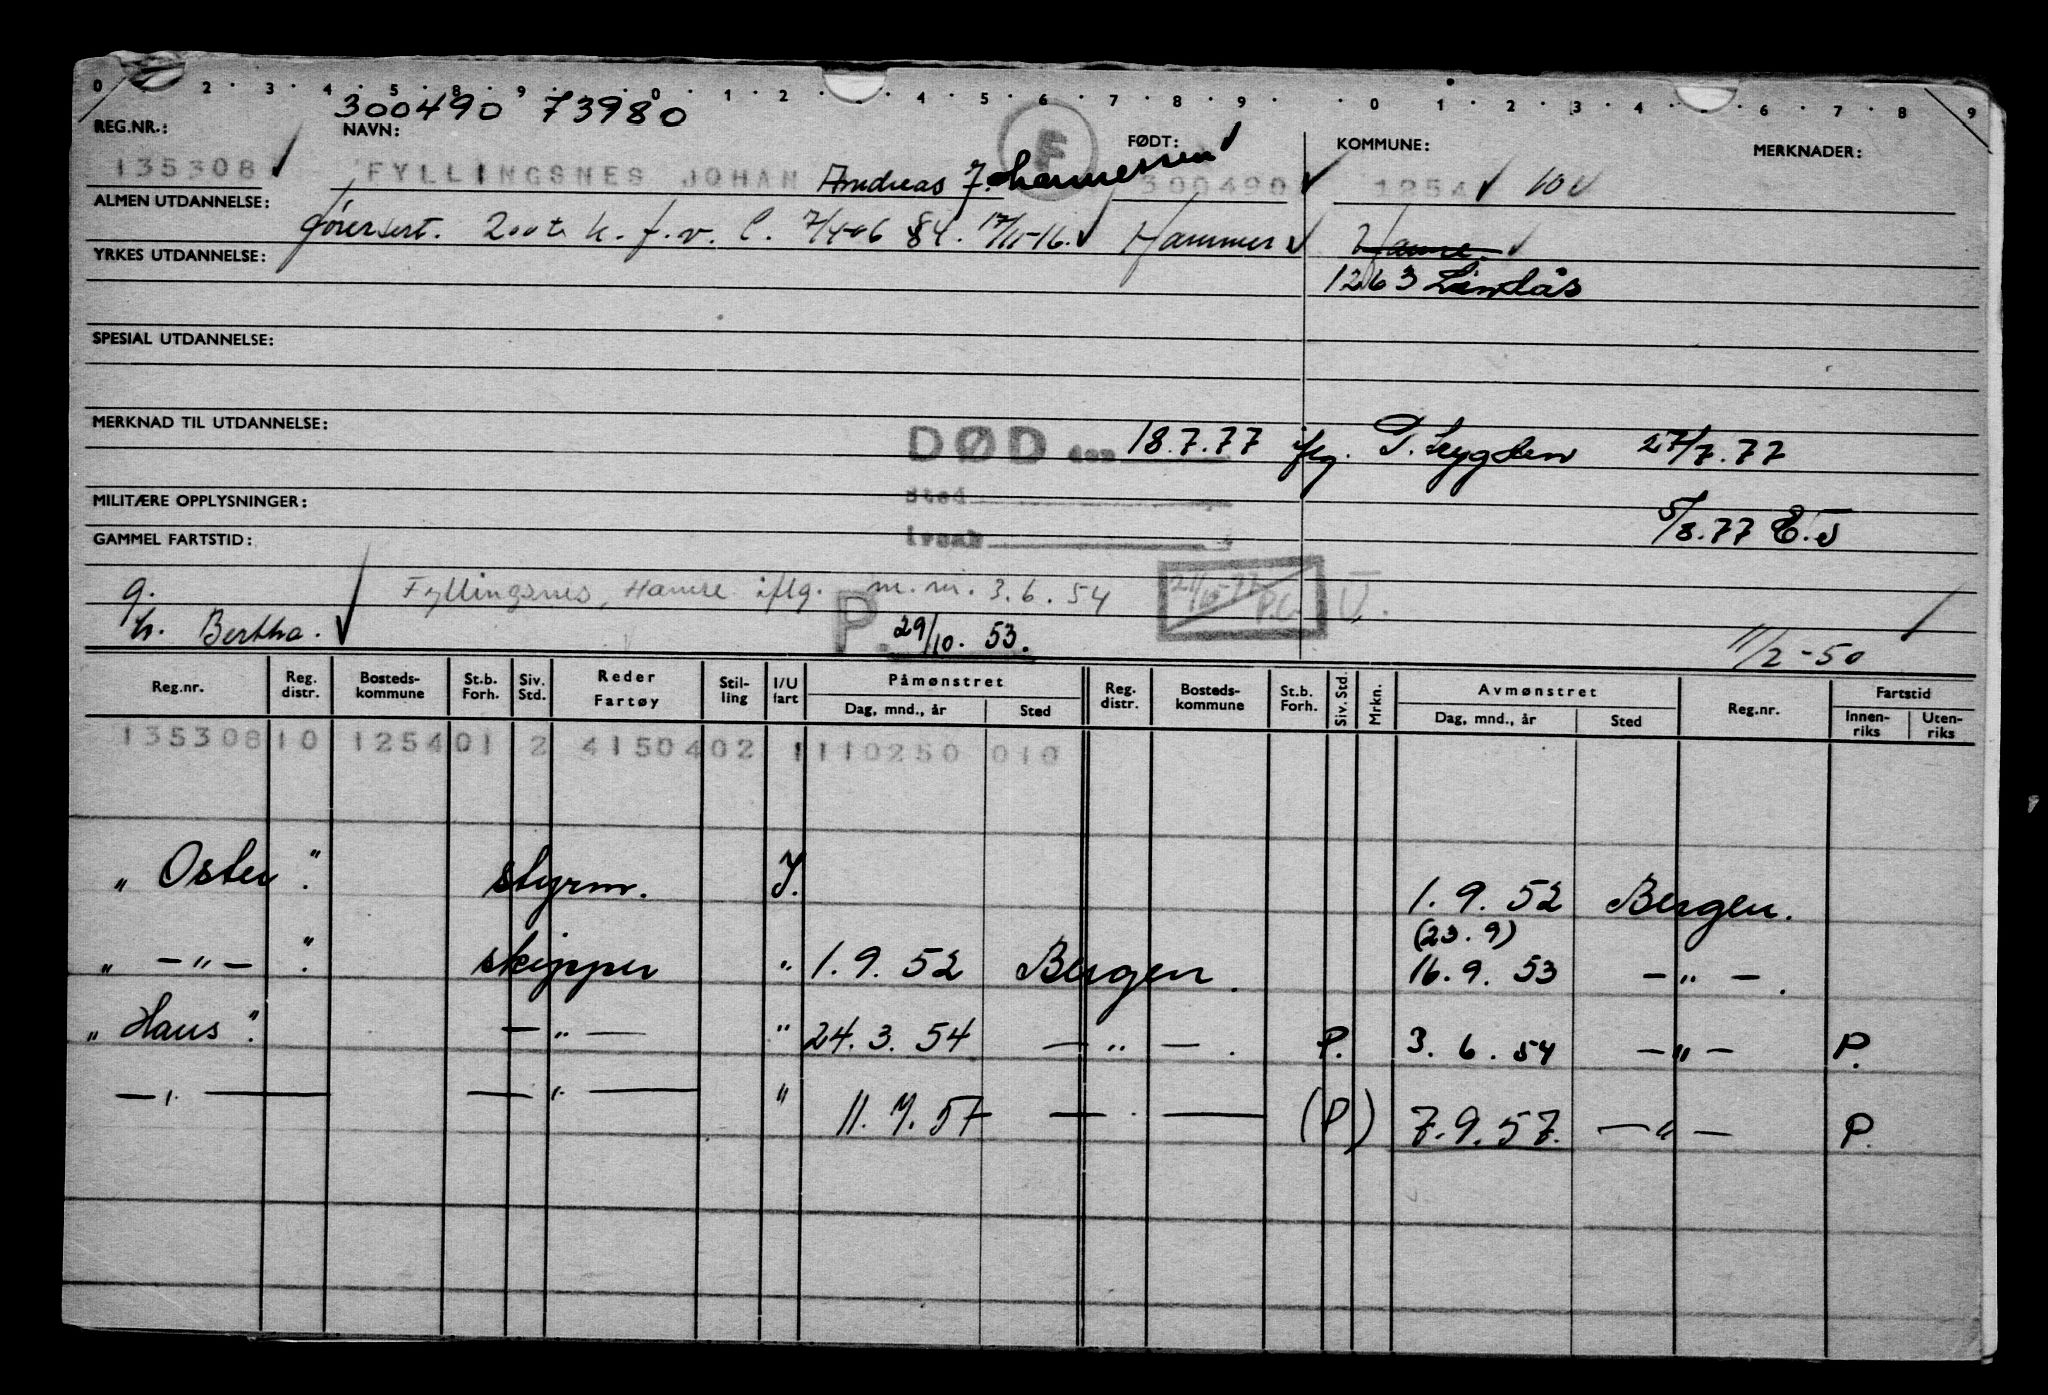 0 2 · 3 · 4 · 5 · 8 · 9 · 0 · 1 · 2 · 4 · 5 · 6 · 7 · 8 · 9 · 0 · 1 · 2 · 3 · 4 · 6 · 7 · 8 · 9
300490 73980
REG.NR.: NAVN: F FØDT: KOMMUNE: MERKNADER:
135308 FYLLINGSNES JOHAN Andreas Johannessen 300490 1254 10
ALMEN UTDANNELSE:
førersert. 200 t. k. f. v. C. 7/4-06 §4. 17/11-16. Hammer Hamre
YRKES UTDANNELSE:
1263 Lindås
SPESIAL UTDANNELSE:
MERKNAD TIL UTDANNELSE: DØD den 18.7.77 iflg. P. 27/7.77
MILITÆRE OPPLYSNINGER: sted
5/8.77 E.J
GAMMEL FARTSTID: årsak
g. Fyllingsnes, Hamre iflg. m.m. 3.6.54
h. Bertha. P. 29/10. 53. 11/2-50
Reg.nr. Reg. distr. Bosteds-kommune St.b. Forh. Siv. Std. Reder Fartøy Stil-ling I/U fart Påmønstret Reg. distr. Bosteds-kommune St.b. Forh. Siv. Std. Mrkn. Avmønstret Reg.nr. Fartstid
Dag, mnd., år Sted Dag, mnd., år Sted Innen-riks Uten-riks
135308 10 1254 01 2 41504 02 1 110250 010
"Oster". styrm. I. 1.9.52 Bergen.
(23.9)
" —"— . skipper " 1.9.52 Bergen. 16.9.53 —"—.
"Haus". —"— " 24.3.54 —"—. P. 3.6.54 —"— P.
—"— —"— " 11.7.57 —"— (P) 7.9.57. —"— P.